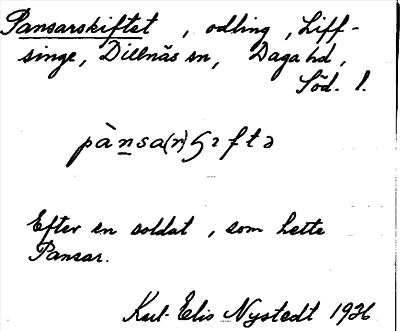 Pansarskiftet, odling, Liff-
singe, Dillnäs sn, Daga hd,
Söd. l.
pànsa(r)ʃɪftə
Efter en soldat, som hette
Pansar.
Karl-Elis Nystedt 1936